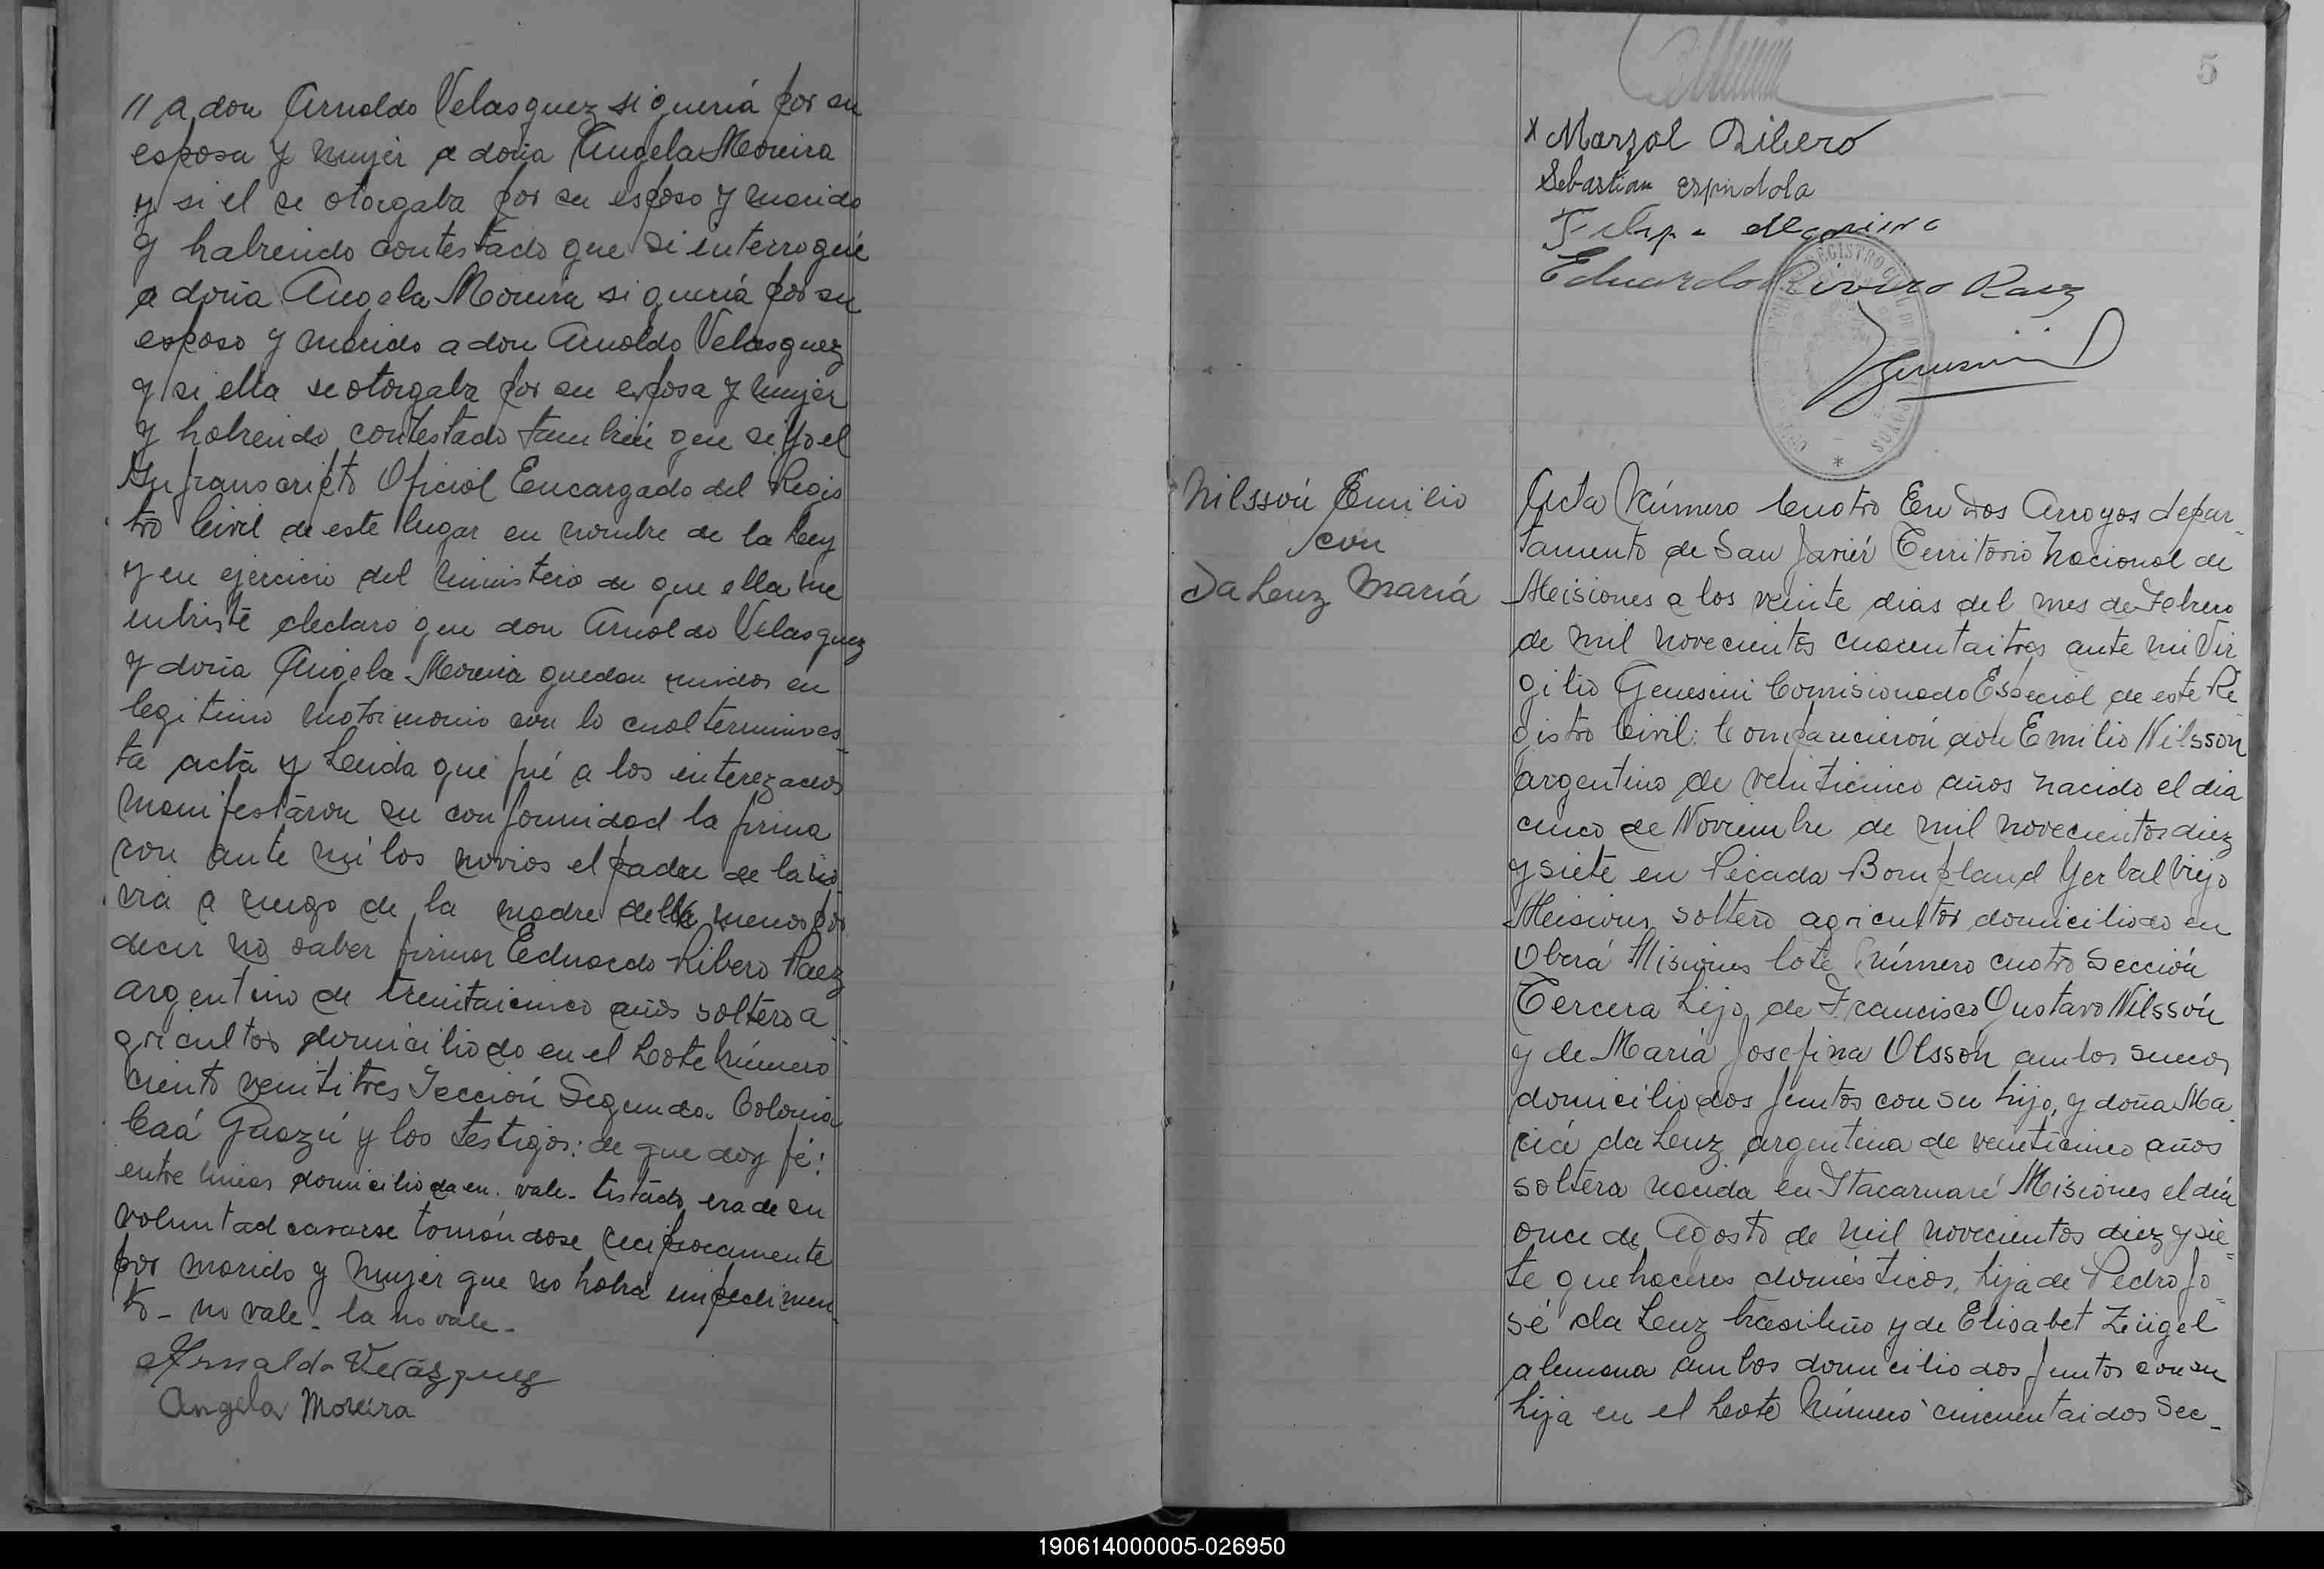 // a don Arnoldo Velasquez si queriá por su
esposa y mujer a doña Angela Moreira
y si el se otorgaba por su esposo y marido
y habiendo contestado que si interrogué
a doña Angela Moreira si queriá por su
esposo y marido a don Arnoldo Velasquez
y si ella se otorgaba por su esposa y mujer
y habiendo contestado tambien que si Yo el
Infranscripto Oficial Encargado del Regis
tro Civil de este lugar en nombre de la Ley
y en ejercicio del ministerio de que ella me
enbiste declaro que don Arnoldo Velasquez
y doña Angela Moreira quedan unidos en
legitimo matrimonio con lo cual termino es_
ta acta y Leida que fué a los interezados
manifestaron su conformidad la firma
ron ante mi los novios el padre de la no
via a ruego de la madre della menos por
decir no saber firmar Eduardo Ribero Paez
argentino de treintaicinco años soltero a
gricultor domiciliado en el Lote Número
ciento veintitres Sección Segunda Colonia
Caá Guazú y los testigos: de que doy fé:
entre lineas domiciliada en. vale. testado era de su
voluntad casarse tomándose reciprocamente
por marido y mujer que no habia impedimen
to - no vale - la no vale -
Arnaldo Velázquez
Angela Moreira
5
x Marzal Ribero
Sebastian Espindola
Felipe
Eduardo Rivero Paez
REGISTRO
Nilssón Emilio
con
Da Luz María
Acta Número Cuatro En Dos Arroyos depar_
tamento de San Javiér Territorio Nacional de
Meisiones a los veinte dias del mes de Febrero
de mil novecientos cuarentaitres ante mi Vir
gilio Genesini Comisionado Especial de este Re
gistro Civil: Comparecierón don Emilio Nilsson
argentino de veinticinco años nacido el dia
cinco de Noviembre de mil novecientos diez
y siete en Picada Bompland Yerbal Viejo
Meisiones soltero agricultor domiciliado en
Oberá Misiones lote Número cuatro Sección
Tercera hijo de Francisco Gustavo Nilssón
y de María Josefina Olsson ambos suecos
domiciliados juntos con su hijo, y doña Ma
ría da Luz argentina de veinticinco años
soltera nacida en Itacaruaré Misiones el dia
once de Agosto de mil novecientos diez y sie_
te quehaceres domésticos, hija de Pedro Jo_
sé da Luz brasileño y de Elisabet Zeügel
alemana ambos domiciliados juntos con su
hija en el Lote Número cincuentaidos Sec_
190614000005-026950